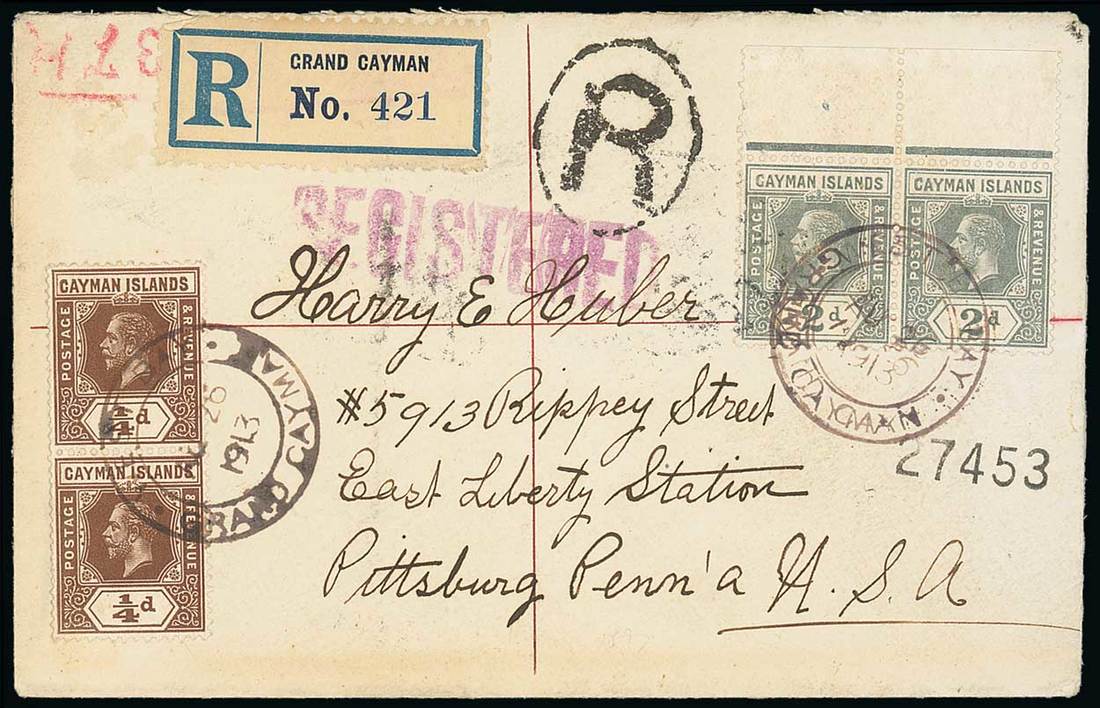 R
GRAND CAYMAN
No. 421
R
REGISTERED
CAYMAN ISLANDS
POSTAGE & REVENUE
2d
CAYMAN ISLANDS
POSTAGE & REVENUE
2d
GRAND CAYMAN
1913
27453
CAYMAN ISLANDS
POSTAGE & REVENUE
1/4d
CAYMAN ISLANDS
POSTAGE & REVENUE
1/4d
GRAND CAYMAN
28
1913
Harry E Huber
#5913 Rippey Street
East Liberty Station
Pittsburg Penn'a U.S.A